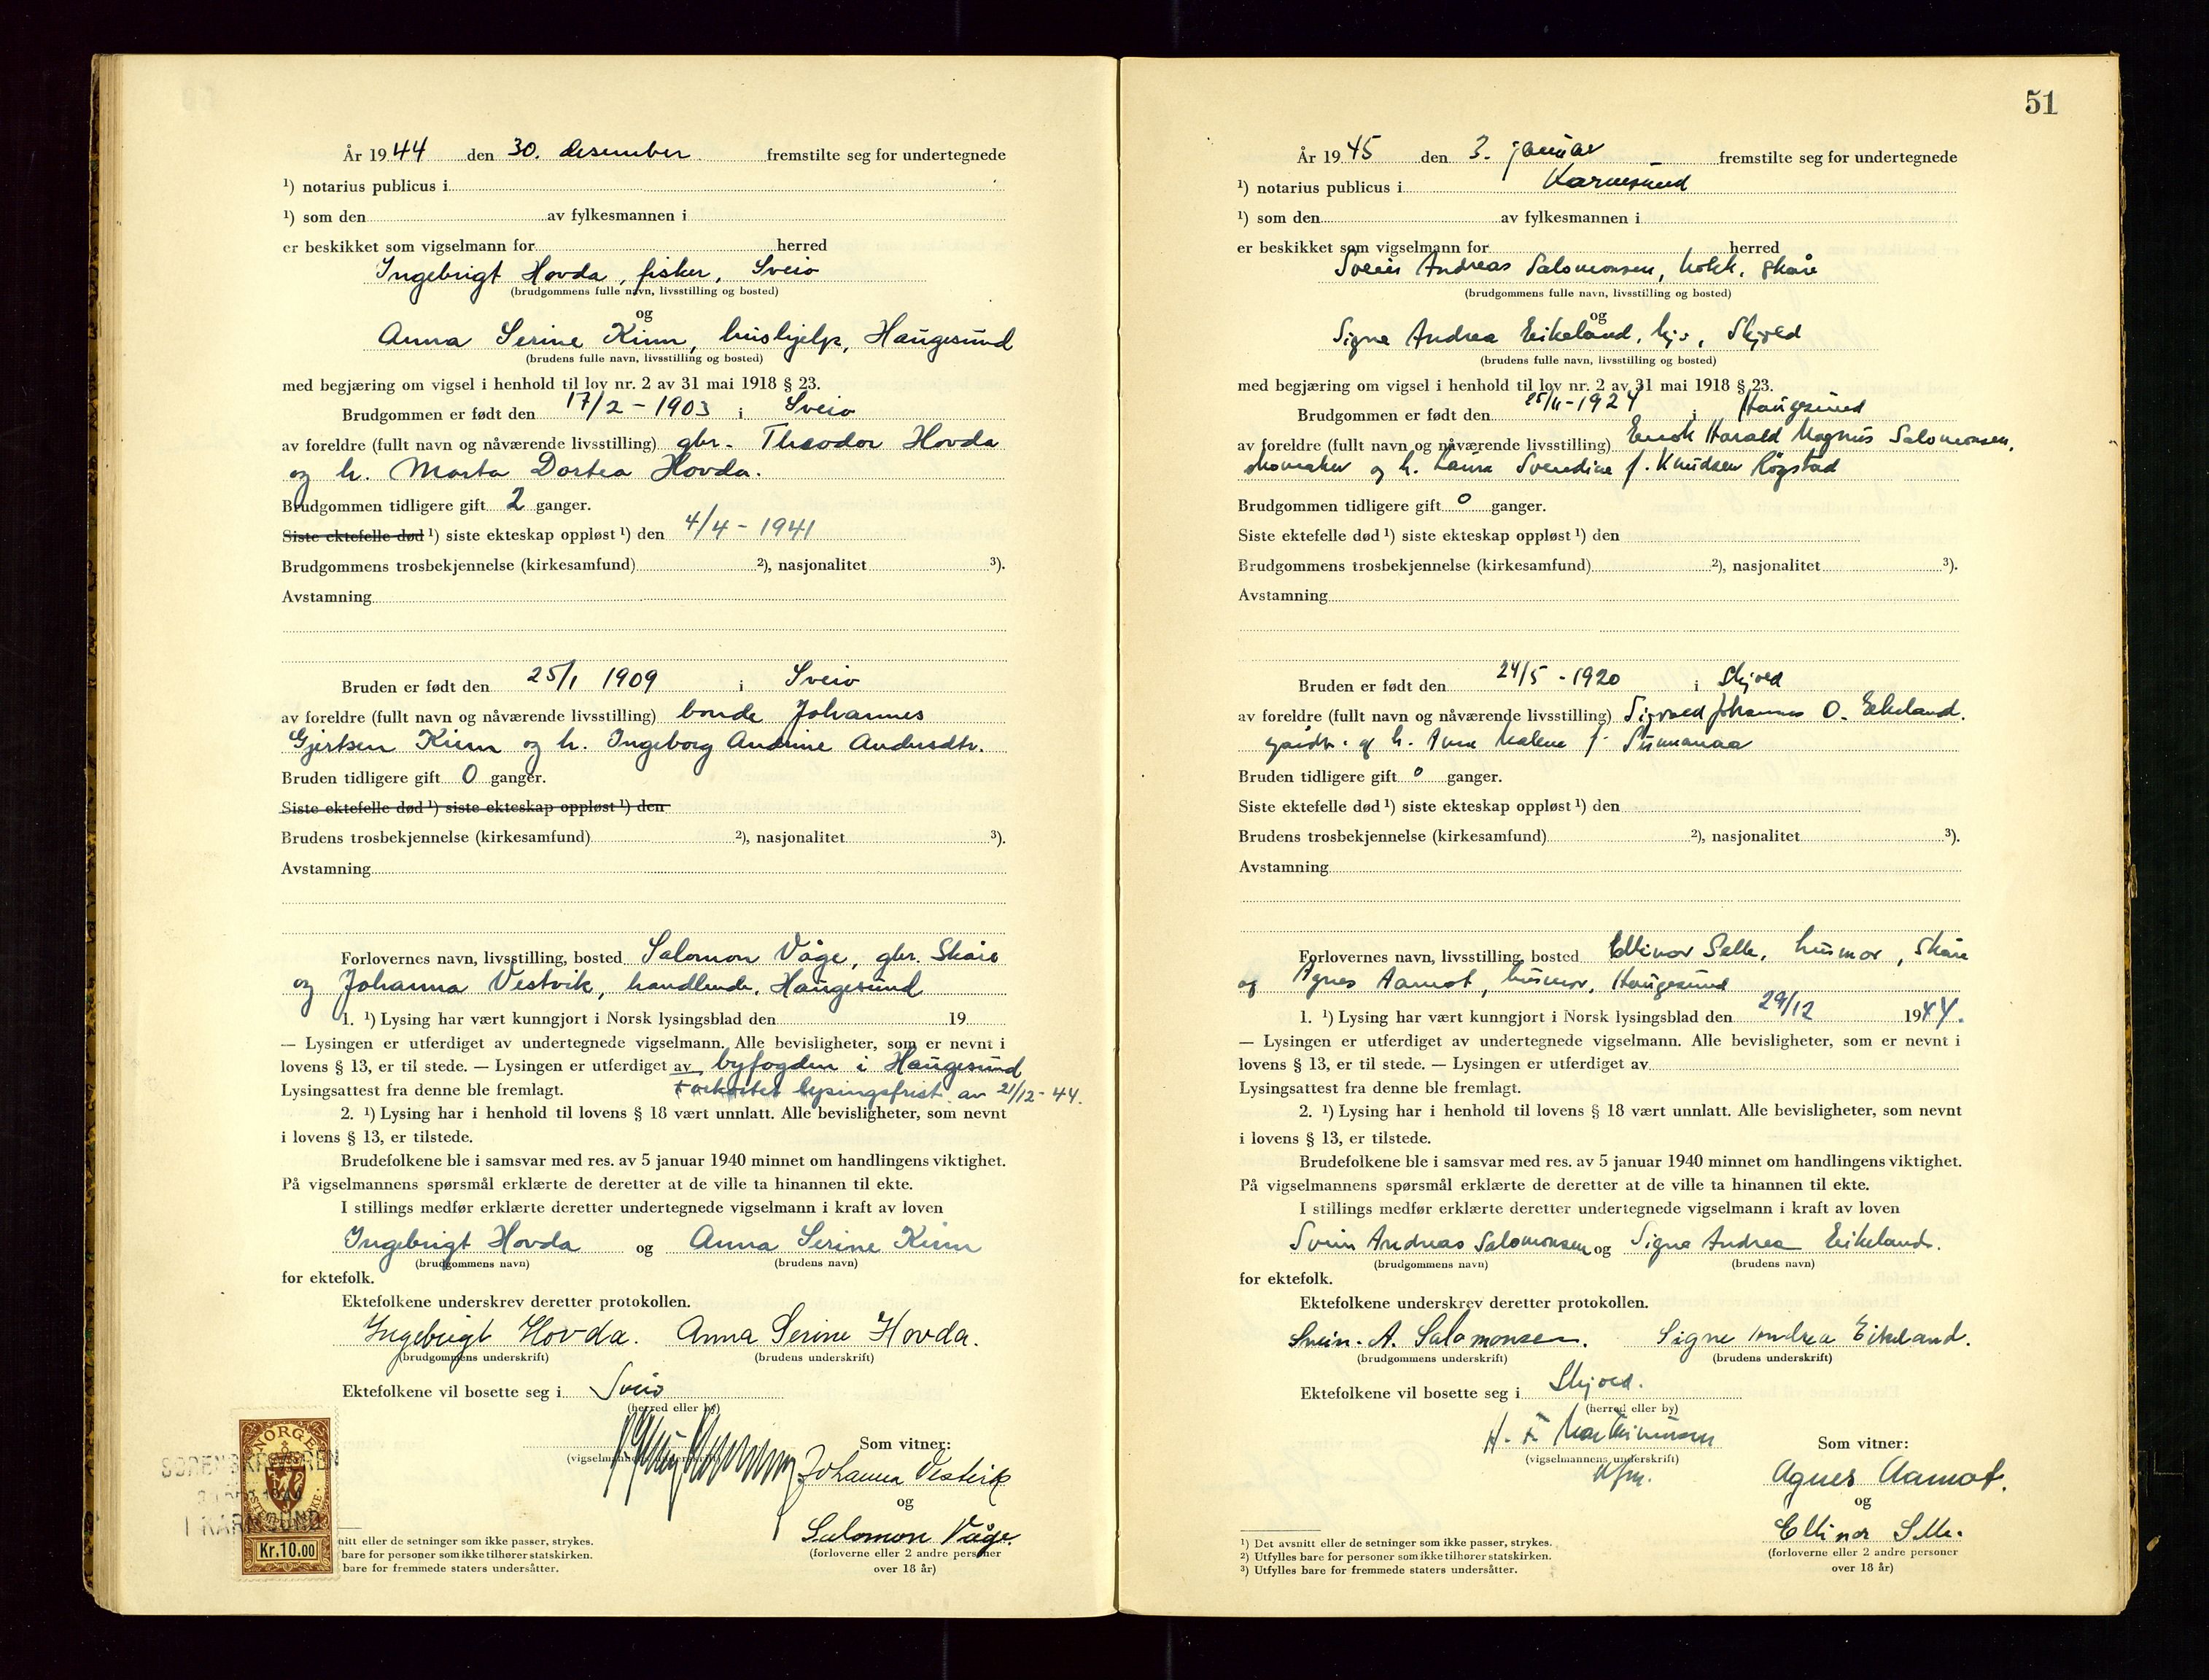 År 1944 den 30. desember fremstilte seg for undertegnede
¹) notarius publicus i
¹) som den av fylkesmannen i
er beskikket som vigselmann for herred
Ingebrigt Hovda, fisker, Sveio
(brudgommens fulle navn, livsstilling og bosted)
og
Anna Serine Kinn, hushjelp, Haugesund
(brudens fulle navn, livsstilling og bosted)
med begjæring om vigsel i henhold til lov nr. 2 av 31 mai 1918 § 23.
Brudgommen er født den 17/2 - 1903 i Sveio
av foreldre (fullt navn og nåværende livsstilling) gbr. Theodor Hovda
og h. Marta Dortea Hovda.
Brudgommen tidligere gift 2 ganger.
Siste ektefelle død ¹) siste ekteskap oppløst ¹) den 4/4 - 1941
Brudgommens trosbekjennelse (kirkesamfund) ²), nasjonalitet ³).
Avstamning
Bruden er født den 25/1 1909 i Sveio
av foreldre (fullt navn og nåværende livsstilling) bonde Johannes
Gjertsen Kinn og h. Ingeborg Andrine Andersdtr.
Bruden tidligere gift 0 ganger.
Siste ektefelle død ¹) siste ekteskap oppløst ¹) den
Brudens trosbekjennelse (kirkesamfund) ²), nasjonalitet ³).
Avstamning
Forlovernes navn, livsstilling, bosted Salomon Våge, gbr. Skåre
og Johanna Vestvik, handlende, Haugesund
1. ¹) Lysing har vært kunngjort i Norsk lysingsblad den 19
— Lysingen er utferdiget av undertegnede vigselmann. Alle bevisligheter, som er nevnt i
lovens § 13, er til stede. — Lysingen er utferdiget av byfogden i Haugesund
Lysingsattest fra denne ble fremlagt. Forkortet lysingsfrist av 21/12 - 44.
2. ¹) Lysing har i henhold til lovens § 18 vært unnlatt. Alle bevisligheter, som nevnt
i lovens § 13, er tilstede.
Brudefolkene ble i samsvar med res. av 5 januar 1940 minnet om handlingens viktighet.
På vigselmannens spørsmål erklærte de deretter at de ville ta hinannen til ekte.
I stillings medfør erklærte deretter undertegnede vigselmann i kraft av loven
Ingebrigt Hovda og Anna Serine Kinn
(brudgommens navn) (brudens navn)
for ektefolk.
Ektefolkene underskrev deretter protokollen.
Ingebrigt Hovda. Anna Serine Hovda.
(brudgommens underskrift) (brudens underskrift)
Ektefolkene vil bosette seg i Sveio
(herred eller by)
Som vitner:
(vigselmannens underskrift)
Johanna Vestvik
og
Salomon Våge.
(forloverne eller 2 andre personer
over 18 år)
NORGE
SORENSKRIVEREN
I KARMSUND
Kr.10.00
nitt eller de setninger som ikke passer, strykes.
bare for personer som ikke tilhører statskirken.
bare for fremmede staters undersåtter.
51
År 1945 den 3. januar fremstilte seg for undertegnede
¹) notarius publicus i Karmsund
¹) som den av fylkesmannen i
er beskikket som vigselmann for herred
Svein Andreas Salomonsen, kokk, Skåre
(brudgommens fulle navn, livsstilling og bosted)
og
Signe Andrea Eikeland, hj., Skjold
(brudens fulle navn, livsstilling og bosted)
med begjæring om vigsel i henhold til lov nr. 2 av 31 mai 1918 § 23.
Brudgommen er født den 25/11-1924 i Haugesund
av foreldre (fullt navn og nåværende livsstilling) Enok Harald Magnus Salomonsen,
skomaker og h. Laura Svendine f. Knudsen Røgstad
Brudgommen tidligere gift 0 ganger.
Siste ektefelle død ¹) siste ekteskap oppløst ¹) den
Brudgommens trosbekjennelse (kirkesamfund) ²), nasjonalitet ³).
Avstamning
Bruden er født den 24/5 - 1920 i Skjold
av foreldre (fullt navn og nåværende livsstilling) Sigvald Johannes O. Eikeland.
gårdbr. og h. Anna Malene f. Sunnanaa
Bruden tidligere gift 0 ganger.
Siste ektefelle død ¹) siste ekteskap oppløst ¹) den
Brudens trosbekjennelse (kirkesamfund) ²), nasjonalitet ³).
Avstamning
Forlovernes navn, livsstilling, bosted Ellinor Selle, husmor, Skåre
og Agnes Aamot, husmor, Haugesund
1. ¹) Lysing har vært kunngjort i Norsk lysingsblad den 29/12 1944.
— Lysingen er utferdiget av undertegnede vigselmann. Alle bevisligheter, som er nevnt i
lovens § 13, er til stede. — Lysingen er utferdiget av
Lysingsattest fra denne ble fremlagt.
2. ¹) Lysing har i henhold til lovens § 18 vært unnlatt. Alle bevisligheter, som nevnt
i lovens § 13, er tilstede.
Brudefolkene ble i samsvar med res. av 5 januar 1940 minnet om handlingens viktighet.
På vigselmannens spørsmål erklærte de deretter at de ville ta hinannen til ekte.
I stillings medfør erklærte deretter undertegnede vigselmann i kraft av loven
Svein Andreas Salomonsen og Signe Andrea Eikeland.
(brudgommens navn) (brudens navn)
for ektefolk.
Ektefolkene underskrev deretter protokollen.
Svein. A. Salomonsen. Signe Andrea Eikeland.
(brudgommens underskrift) (brudens underskrift)
Ektefolkene vil bosette seg i Skjold.
(herred eller by)
Som vitner:
(vigselmannens underskrift)
Agnes Aamot.
og
Ellinor Selle.
(forloverne eller 2 andre personer
over 18 år)
¹) Det avsnitt eller de setninger som ikke passer, strykes.
²) Utfylles bare for personer som ikke tilhører statskirken.
³) Utfylles bare for fremmede staters undersåtter.